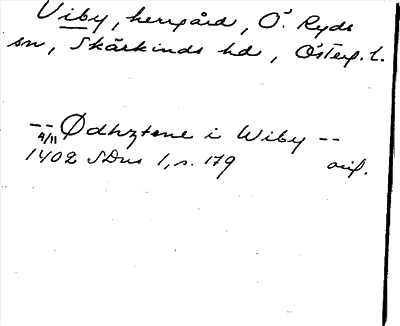 Viby, herrgård, Ö. Ryds
sn, Skärkinds hd, Österg. l.
-- Ødhztene i Wiby --
9/11
1402 SDns 1, s. 179 orig.